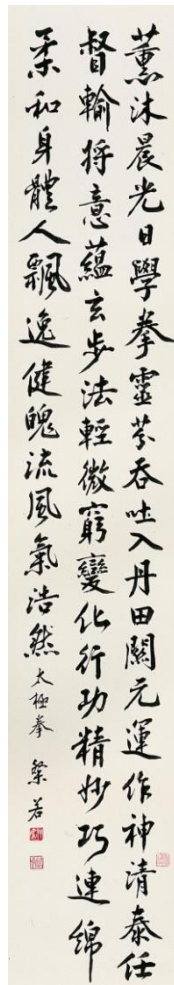 薰沐晨光日學拳靈芬吞吐入丹田關元運作神清泰任
督輪將意蘊玄步法輕微窮變化行功精妙巧連綿
柔和身體人飄逸健魄流風氣浩然太極拳 槩若